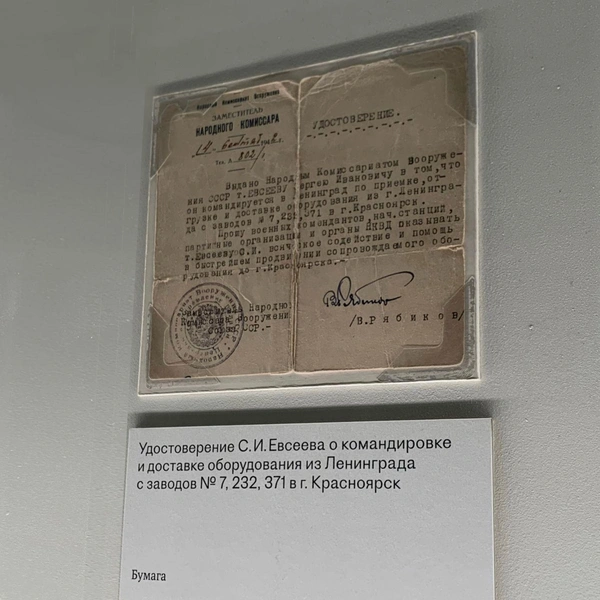 Народный Комиссариат Вооружения
ЗАМЕСТИТЕЛЬ
НАРОДНОГО КОМИССАРА
802/
УДОСТОВЕРЕНИЕ.
Выдано Народным Комиссариатом Вооруже-
ния СССР т.ЕВСЕЕВУ Сергею Ивановичу в том, что
он командируется в Ленинград по приемке, от-
грузке и доставке оборудования из г.Ленингра-
да с заводов № 7,232,371 в г.Красноярск.
Прошу военных комендантов, нач.станций,
партийные организации и органы НКВД оказывать
т.Евсееву С.И. всяческое содействие и помощь
в быстрейшем продвижении сопровождаемого обо-
рудования до г.Красноярска.-
Заместитель Народно
Комиссара Вооружени
Союза ССР.-
/В.Рябиков/
Удостоверение С.И.Евсеева о командировке
и доставке оборудования из Ленинграда
с заводов № 7, 232, 371 в г. Красноярск
Бумага